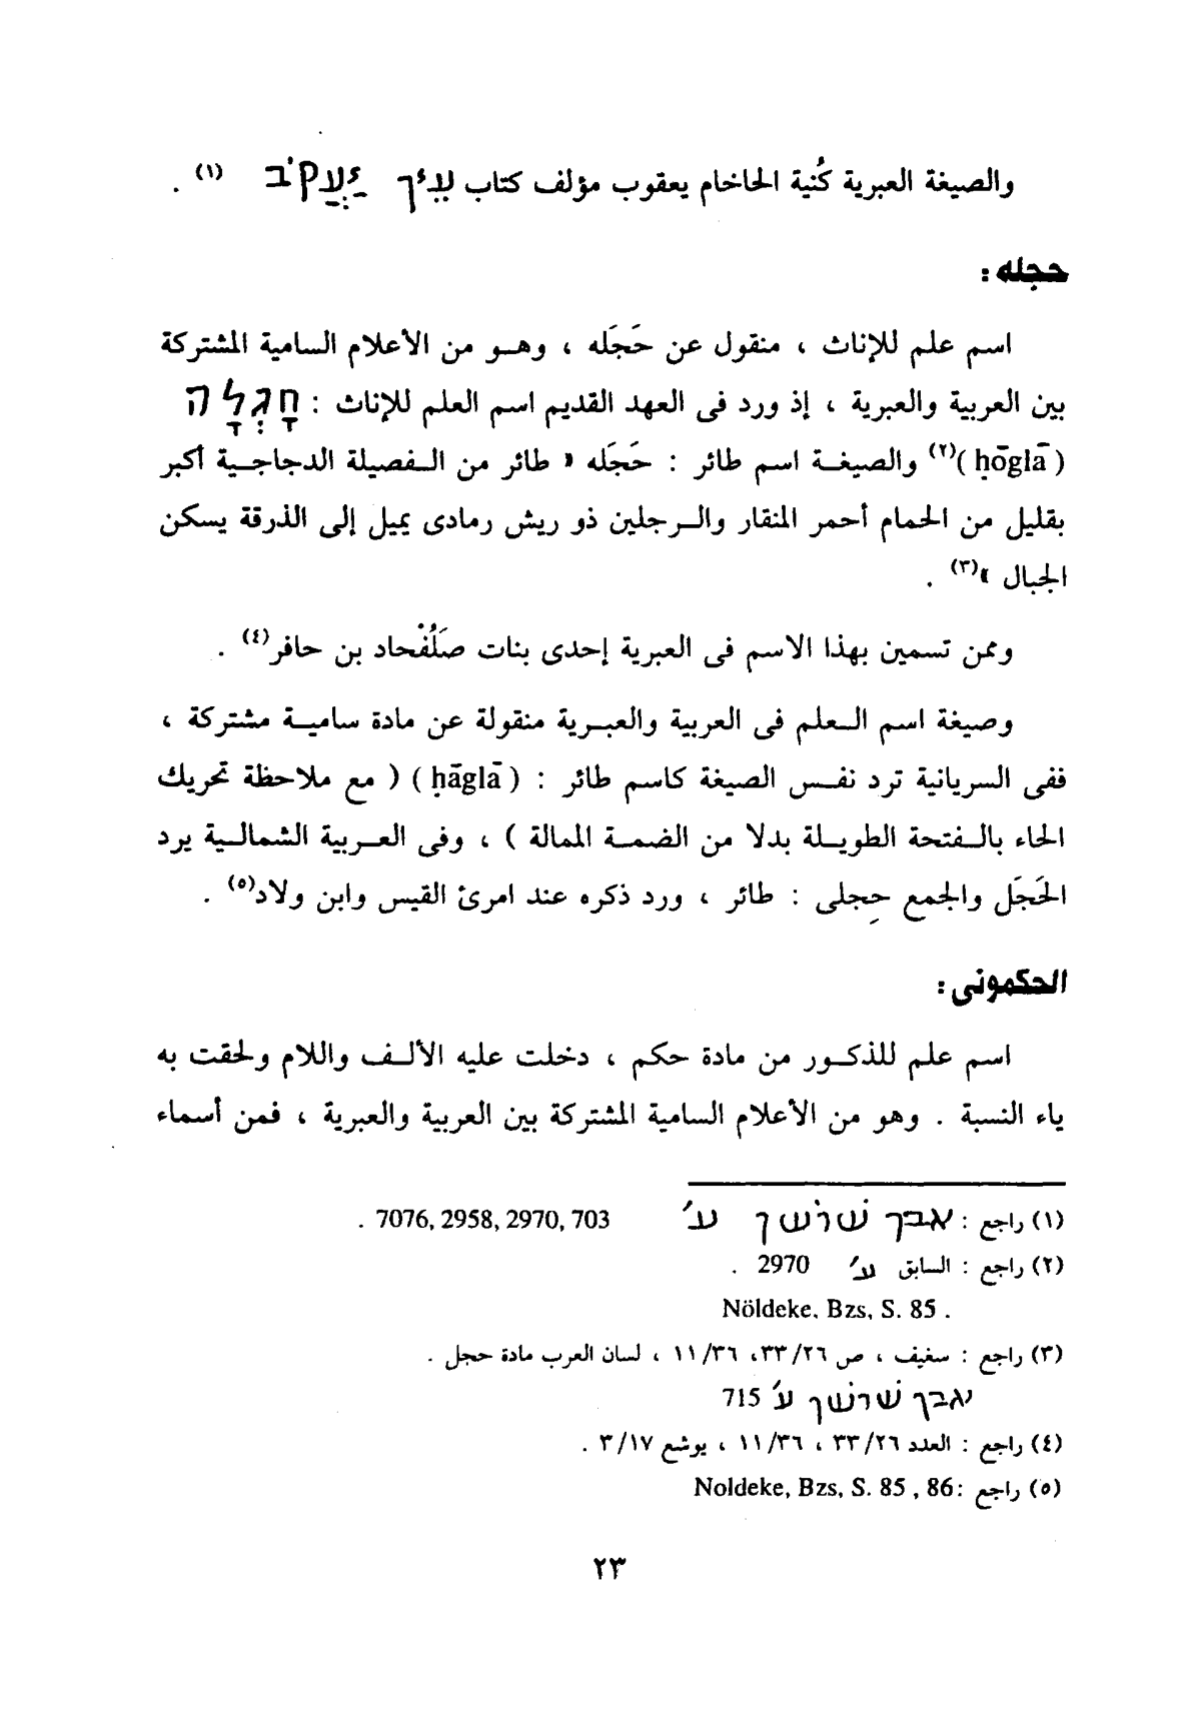 والصيغة العبرية كُنية الحاخام يعقوب مؤلف كتاب עין יַעֲקֹב (١) .
حجله :
اسم علم للإناث ، منقول عن حَجَله ، وهو من الأعلام السامية المشتركة
بين العربية والعبرية ، إذ ورد فى العهد القديم اسم العلم للإناث : חָגְלָה
( ḥōglā )(٢) والصيغة اسم طائر : حَجَله « طائر من الفصيلة الدجاجية أكبر
بقليل من الحمام أحمر المنقار والرجلين ذو ريش رمادى يميل إلى الذرقة يسكن
الجبال »(٣) .
وممن تسمين بهذا الاسم فى العبرية إحدى بنات صَلُفْحاد بن حافر(٤) .
وصيغة اسم العلم فى العربية والعبرية منقولة عن مادة سامية مشتركة ،
ففى السريانية ترد نفس الصيغة كاسم طائر : ( ḥāglā ) ( مع ملاحظة تحريك
الحاء بالفتحة الطويلة بدلا من الضمة الممالة ) ، وفى العربية الشمالية يرد
الحَجَل والجمع حِجلى : طائر ، ورد ذكره عند امرئ القيس وابن ولاد(٥) .
الحكمونى :
اسم علم للذكور من مادة حكم ، دخلت عليه الألف واللام ولحقت به
ياء النسبة . وهو من الأعلام السامية المشتركة بين العربية والعبرية ، فمن أسماء
(١) راجع : אבן שושן ע׳ 7076, 2958, 2970, 703 .
(٢) راجع : السابق ע׳ 2970 .
Nöldeke, Bzs, S. 85 .
(٣) راجع : سغيف ، ص ٣٣/٢٦، ١١/٣٦ ، لسان العرب مادة حجل .
אבן שושן ע׳ 715
(٤) راجع : العدد ٣٣/٢٦ ، ١١/٣٦ ، يوشع ٣/١٧ .
(٥) راجع : Noldeke, Bzs, S. 85 , 86
٢٣